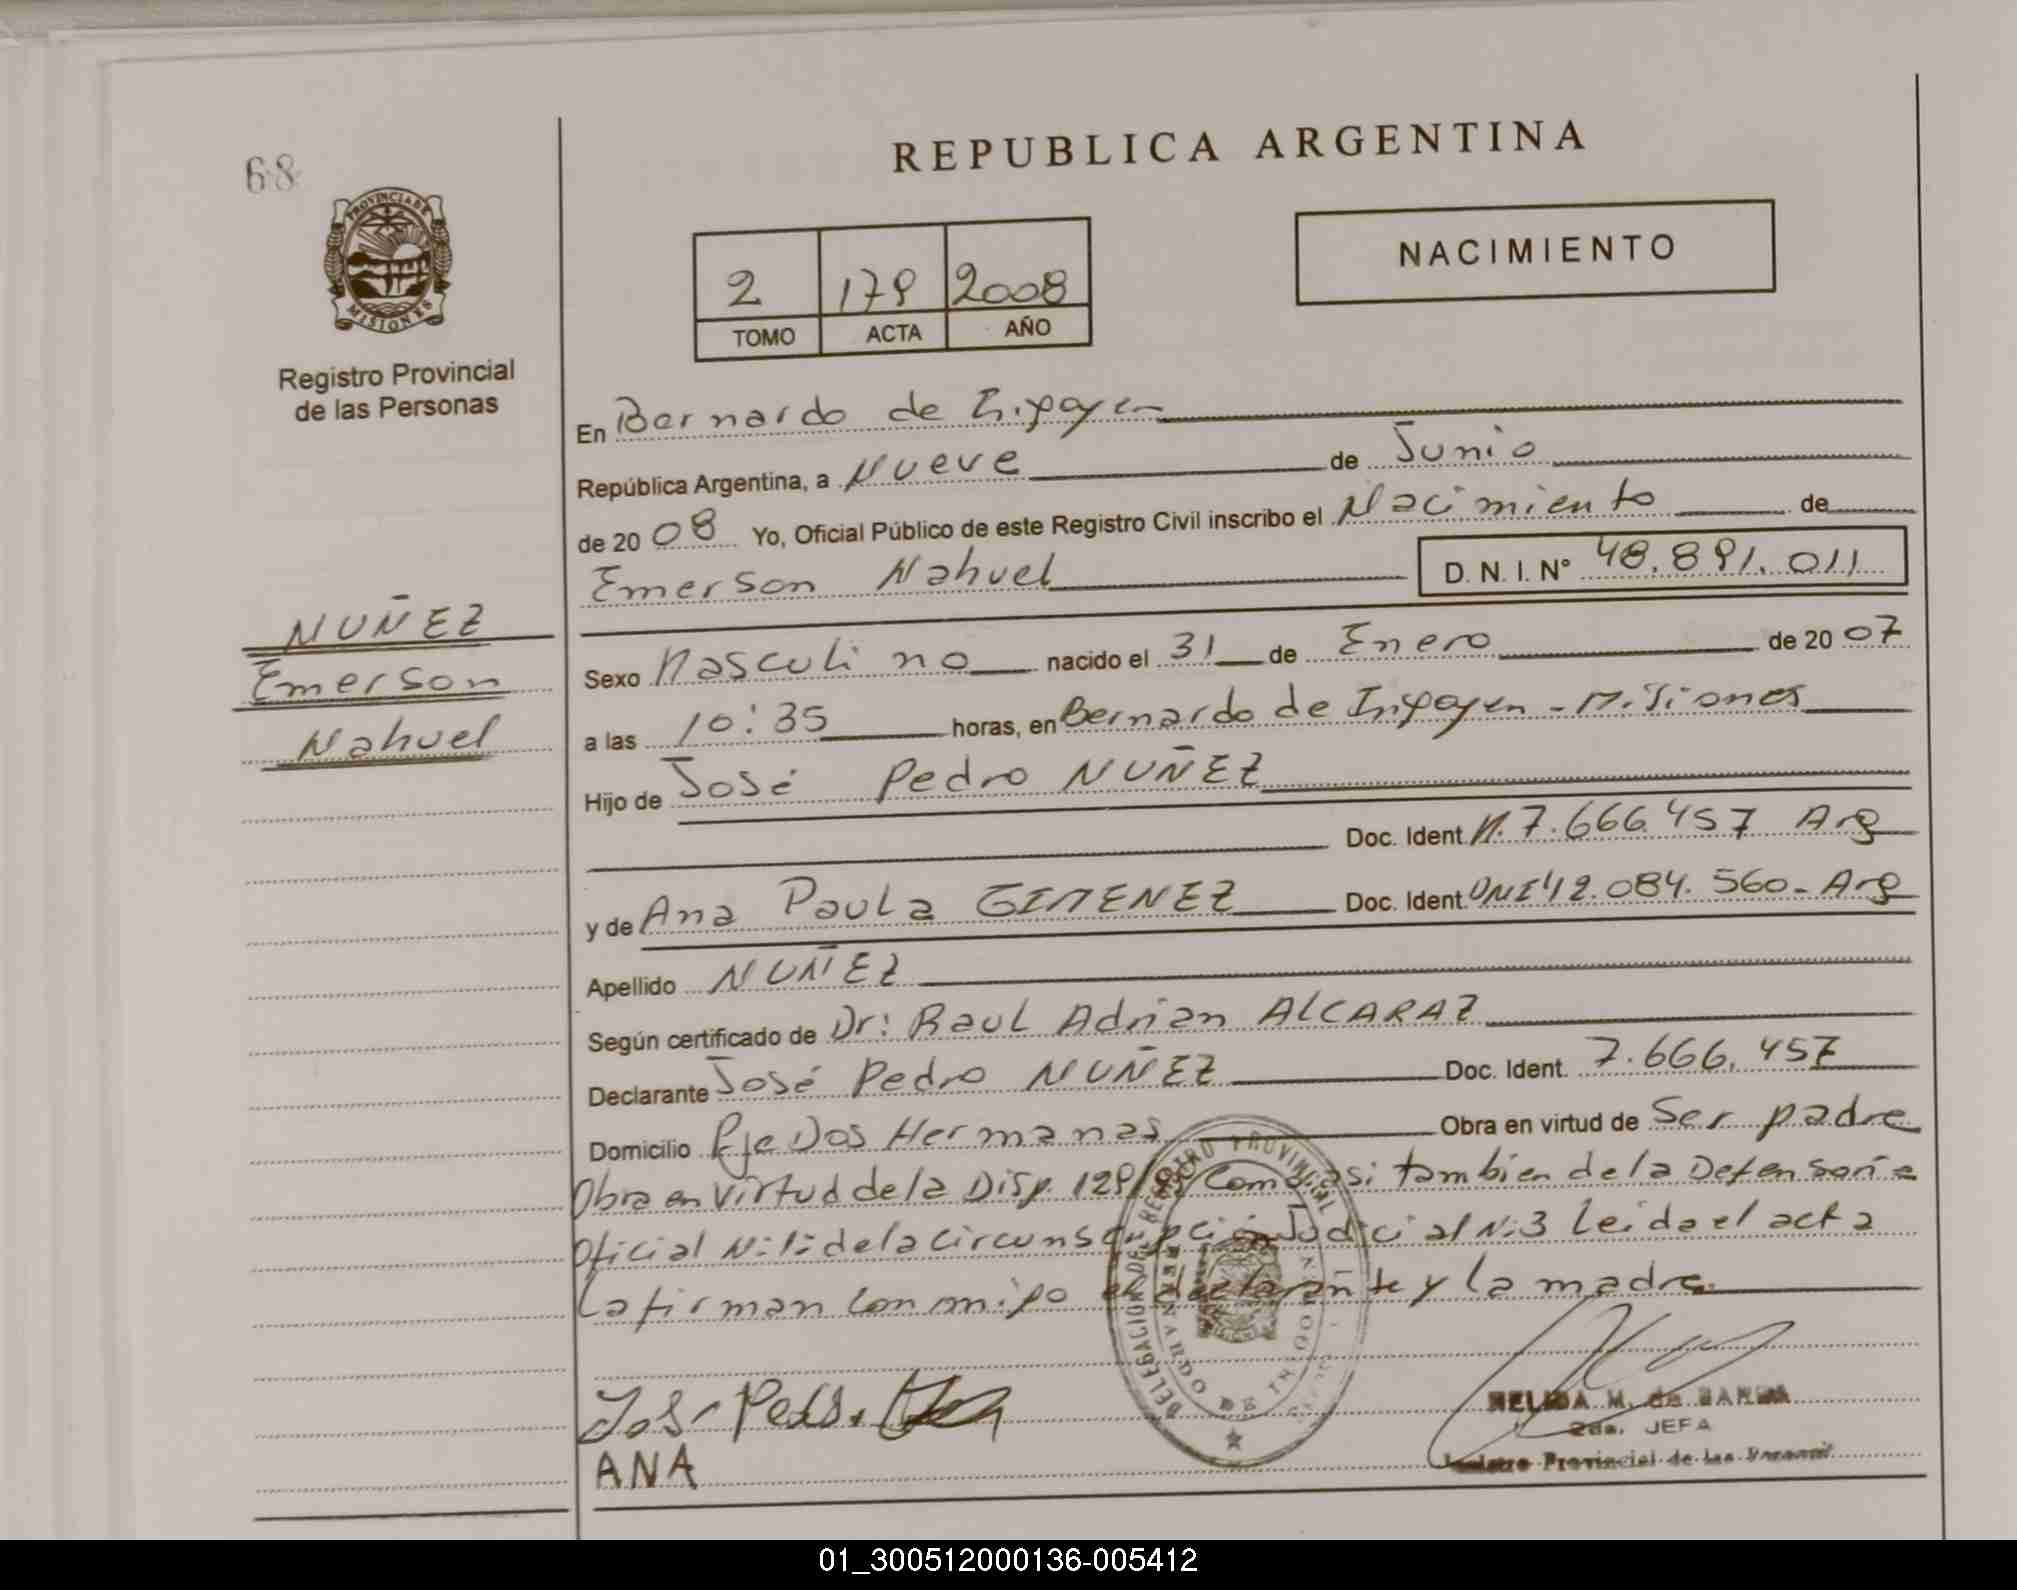 68
REPUBLICA ARGENTINA
PROVINCIA DE
MISIONES
Registro Provincial
de las Personas
NACIMIENTO
2 179 2008
TOMO ACTA AÑO
En Bernardo de Irigoyen
República Argentina, a Nueve de Junio
de 2008 Yo, Oficial Público de este Registro Civil inscribo el Nacimiento de
Emerson Nahuel D. N. I. N° 48.891.011
NUÑEZ
Emerson
Nahuel
Sexo Masculino nacido el 31 de Enero de 2007
a las 10:35 horas, en Bernardo de Irigoyen - Misiones
Hijo de José Pedro NUÑEZ
Doc. Ident. M. 7.666.457 Arg
y de Ana Paula GIMENEZ Doc. Ident. DNI 42.084.560- Arg
Apellido NUÑEZ
Según certificado de Dr: Raul Adrian ALCARAZ
Declarante José Pedro NUÑEZ Doc. Ident. 7.666.457
Domicilio Pje Dos Hermanas Obra en virtud de Ser padre
Obra en virtud de la Disp. 129/ Como asi tambien de la Defensoria
Oficial N:1: de la circunscripción Judicial N:3 Leida el acta
La firman conmigo el declarante y la madre.
DELEGACION DEL REGISTRO PROVINCIAL
José Pedro
ANA
NELIDA M. de
2da. JEFA
Registro Provincial de las Personas
01_300512000136-005412